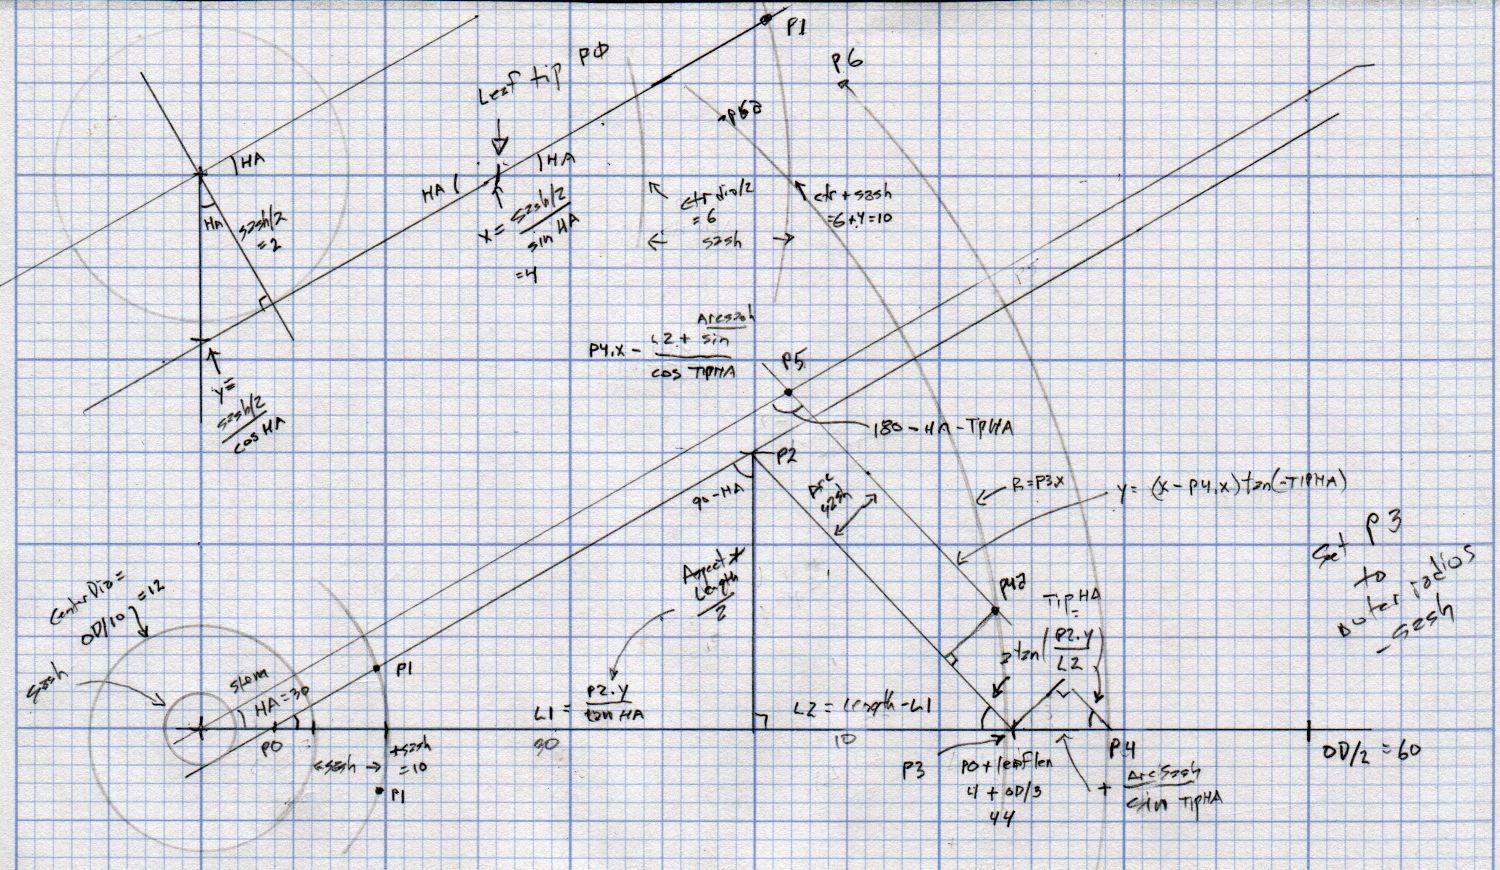 P1
P6
Leaf tip PΦ
P6a
HA
HA
HA
HA
sash/2
= 2
x = sash/2
sin HA
= 4
ctr dia/2
= 6
sash
ctr + sash
= 6+4=10
y =
sash/2
cos HA
P4.x - L2 + Arcsash
sin
cos TipHA
P5
180 - HA - TipHA
P2
90 - HA
Arc
sash
R = P3.x
y = (x - P4.x) tan(-TIPHA)
Set P3
to
outer radius
- sash
Center Dia =
OD/10 = 12
Aspect *
Length
2
P4a
TipHA
atan(P2.y
L2)
sash
stem
HA = 30
P1
L1 = P2.y
tan HA
L2 = length - L1
P0
+sash
=10
sash
P1
10
P3
P0 + leaflen
4 + OD/3
44
P4
+ ArcSash
sin TipHA
OD/2 = 60